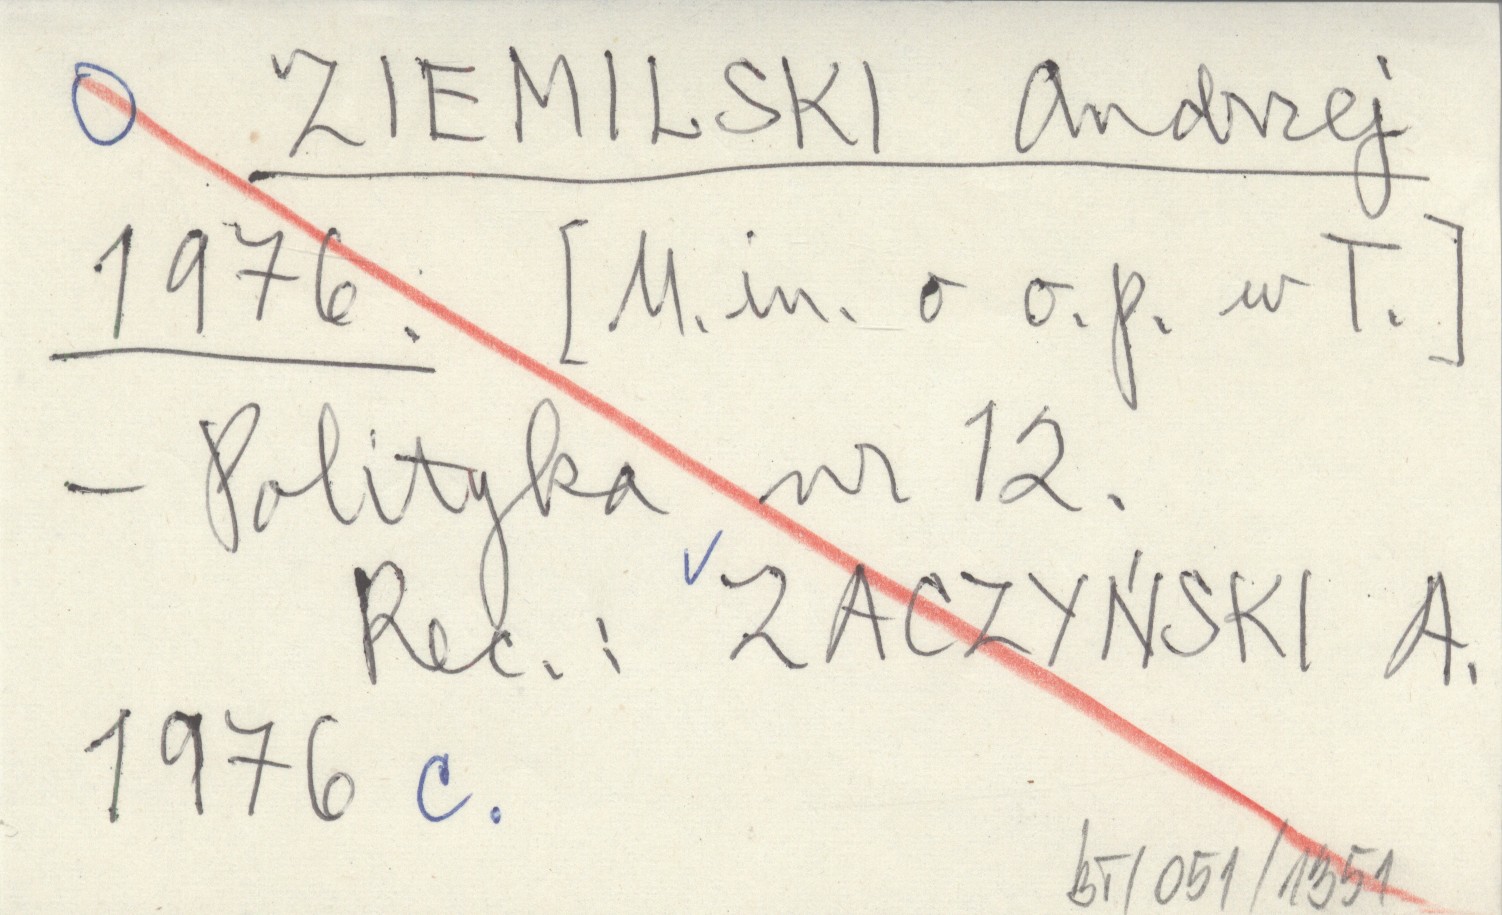 ZIEMILSKI Andrzej
1976. [M.in. o o.p. w T.]
- Polityka nr 12.
Rec.: ZACZYŃSKI A.
1976 c.
BT/051/1351